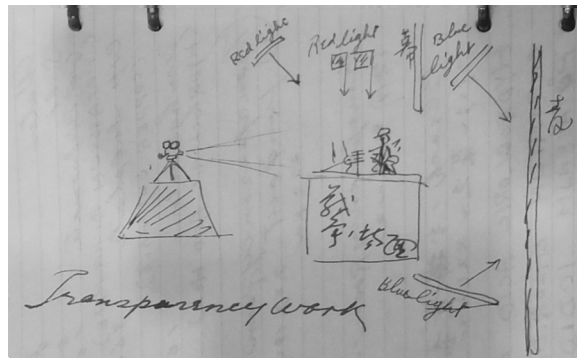 Red light
Red light
幕
Blue
light
Blue light
Transparency Work